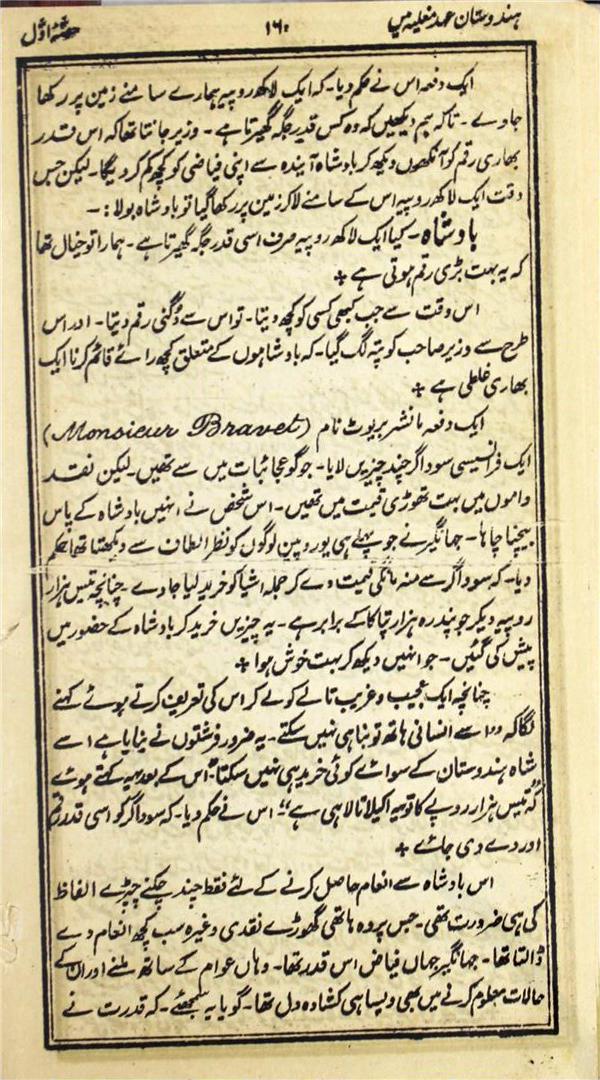 ہندوستان عہد مغلیہ میں ۱۶۰ حصّۂ اوّل
ایک دفعہ اس نے حکم دیا۔ کہ ایک لاکھ روپیہ ہمارے سامنے زمین پر رکھا
جاوے۔ تاکہ ہم دیکھیں کہ وہ کس قدر جگہ گھیرتا ہے۔ وزیر جانتا تھا کہ اس قدر
بھاری رقم کو آنکھوں دیکھ کر بادشاہ آیندہ سے اپنی فیاضی کو کچھ کم کر دیگا۔ لیکن جس
وقت ایک لاکھ روپیہ اس کے سامنے لا کر زمین پر رکھا گیا تو بادشاہ بولا:۔
بادشاہ۔ کیا ایک لاکھ روپیہ صرف اسی قدر جگہ گھیرتا ہے۔ ہمارا تو خیال تھا
کہ یہ بہت بڑی رقم ہوتی ہے +
اس وقت سے جب کبھی کسی کو کچھ دیتا۔ تو اس سے دُگنی رقم دیتا۔ اور اس
طرح سے وزیر صاحب کو پتہ لگ گیا۔ کہ بادشاہوں کے متعلق کچھ رائے قائم کرنا ایک
بھاری غلطی ہے +
ایک دفعہ مانشر بریوٹ نام (Monsieur Bravet)
ایک فرانسیسی سوداگر چند چیزیں لایا۔ جو گو عجائبات میں سے تھیں۔ لیکن نقد
داموں میں بہت تھوڑی قیمت میں تھیں۔ اس شخص نے انہیں بادشاہ کے پاس
بیچنا چاہا۔ جہانگیر نے جو پہلے ہی یوروپین لوگوں کو نظر الطاف سے دیکھتا تھا حکم
دیا۔ کہ سوداگر سے منہ مانگی قیمت دے کر جملہ اشیا کو خرید لیا جاوے۔ چنانچہ تیس ہزار
روپیہ دیکر جو پندرہ ہزار پتاکا کے برابر ہے۔ یہ چیزیں خرید کر بادشاہ کے حضور میں
پیش کی گئیں۔ جو انہیں دیکھ کر بہت خوش ہوا +
چنانچہ ایک عجیب و غریب تالے کو لے کر اس کی تعریف کرتے ہوئے کہنے
لگا کہ "اسے انسانی ہاتھ تو بنا ہی نہیں سکتے۔ یہ ضرور فرشتوں نے بنایا ہے اسے
شاہ ہندوستان کے سوائے کوئی خرید ہی نہیں سکتا" اس کے بعد یہ کہتے ہوئے
"کہ تیس ہزار روپے کا تو یہ اکیلا تالا ہی ہے" اس نے حکم دیا۔ کہ سوداگر کو اسی قدر رقم
اور دے دی جائے +
اس بادشاہ سے انعام حاصل کرنے کے لئے فقط چند چکنے چپڑے الفاظ
کی ہی ضرورت تھی۔ جس پر وہ ہاتھی گھوڑے نقدی وغیرہ سب کچھ انعام دے
ڈالتا تھا۔ جہانگیر جہاں فیاض اس قدر تھا۔ وہاں عوام کے ساتھ ملنے اور ان کے
حالات معلوم کرنے میں بھی ویسا ہی کشادہ دل تھا۔ گویا یہ سمجھئے۔ کہ قدرت نے